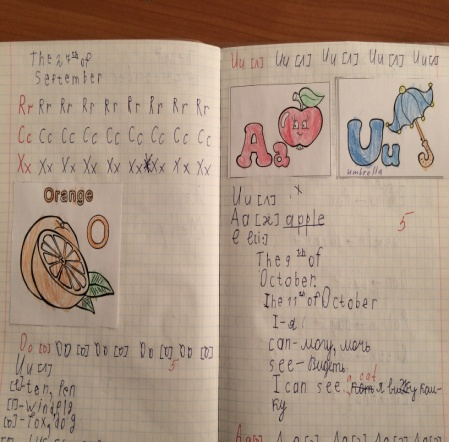 The 24th of
September
Rr Rr Rr Rr Rr Rr Rr Rr Rr
Cc Cc Cc Cc Cc Cc Cc Cc Cc
Xx Xx Xx Xx Xx Xx Xx Xx
Orange
O
Oo [ɒ] Oo [ɒ] Oo [ɒ] Oo [ɒ] Oo [ɒ]
5
Uu [ʌ]
ten, pen
[ɒ]-fox, dog
Uu [ʌ] Uu [ʌ] Uu [ʌ] Uu [ʌ] Uu [ʌ]
Aa
Uu
umbrella
Uu [ʌ]
Aa [æ] apple
5
e [i:]
The 9th of
October.
The 11th of October
I-я
can-могу, мочь
see-видеть
I can see a cat я вижу кош-
ку